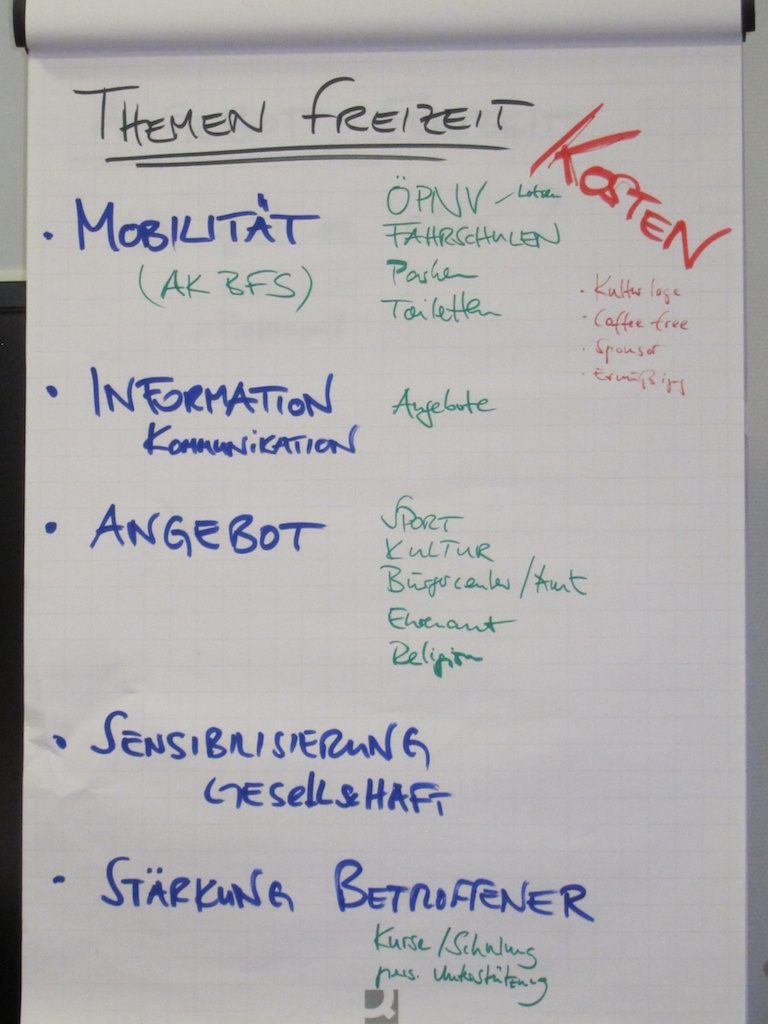 THEMEN FREIZEIT
KOSTEN
• MOBILITÄT
(AK BFS)
ÖPNV – Lotsen
FAHRSCHULEN
Parken
Toiletten
· Kulturloge
· Caffee-free
· Sponsor
· Ermäßigg
• INFORMATION
KOMMUNIKATION
Angebote
• ANGEBOT
SPORT
KULTUR
Bürgercenter/Amt
Ehrenamt
Religion
• SENSIBILISIERUNG
GESELLSCHAFT
• STÄRKUNG BETROFFENER
Kurse/Schulung
pers. Unterstützung